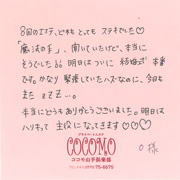 8回のエステ、どれも とっても ステキでした♡
「魔法の手」、聞いていたけど、本当に
そうでした 明日はついに 結婚式 本番
です。かなり 緊張していたハズなのに、今日も
また zzz...。
本当にどうもありがとうございました。明日は
ハリキって 主役になってきます♡♡♡
O様
COCOMO
ココモ山手倶楽部
75-6675